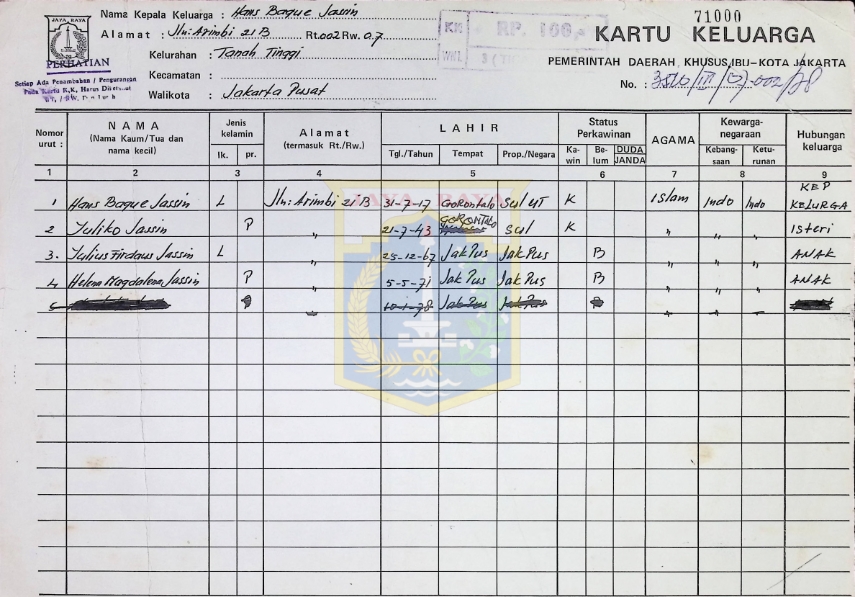 JAYA RAYA
PERHATIAN
Setiap Ada Penambahan / Pengurangan
Pada Kartu K.K. Harus
Nama Kepala Keluarga : Hans Baque Jassin
Alamat : Jln: Arimbi 21 B Rt. 002 Rw. 07
Kelurahan : Tanah Tinggi
Kecamatan :
Walikota : Jakarta Pusat
RP. 100,-
71000
KARTU KELUARGA
PEMERINTAH DAERAH KHUSUS IBU-KOTA JAKARTA
No. :
Nomor urut : NAMA (Nama Kaum/Tua dan nama kecil) Jenis kelamin lk. pr. Alamat (termasuk Rt./Rw.) LAHIR Tgl./Tahun Tempat Prop./Negara Status Perkawinan Ka-win Be-lum DUDA JANDA AGAMA Kewarga-negaraan Kebang-saan Ketu-runan Hubungan keluarga
1 2 3 4 5 6 7 8 9
1 Hans Baque Jassin L Jln: Arimbi 21 B 31-7-17 Gorontalo Sul UT K Islam Indo Indo KEP KELURGA
2 Yuliko Jassin P " 21-7-43 GORONTALO Sul K " " " Isteri
3. Yulius Firdaus Jassin L " 25-12-67 Jak Pus Jak Pus B " " " ANAK
4 Helena Magdalena Jassin P " 5-5-71 Jak Pus Jak Pus B " " " ANAK
10-1-78 Jak Pus Jak Pus
JAYA RAYA